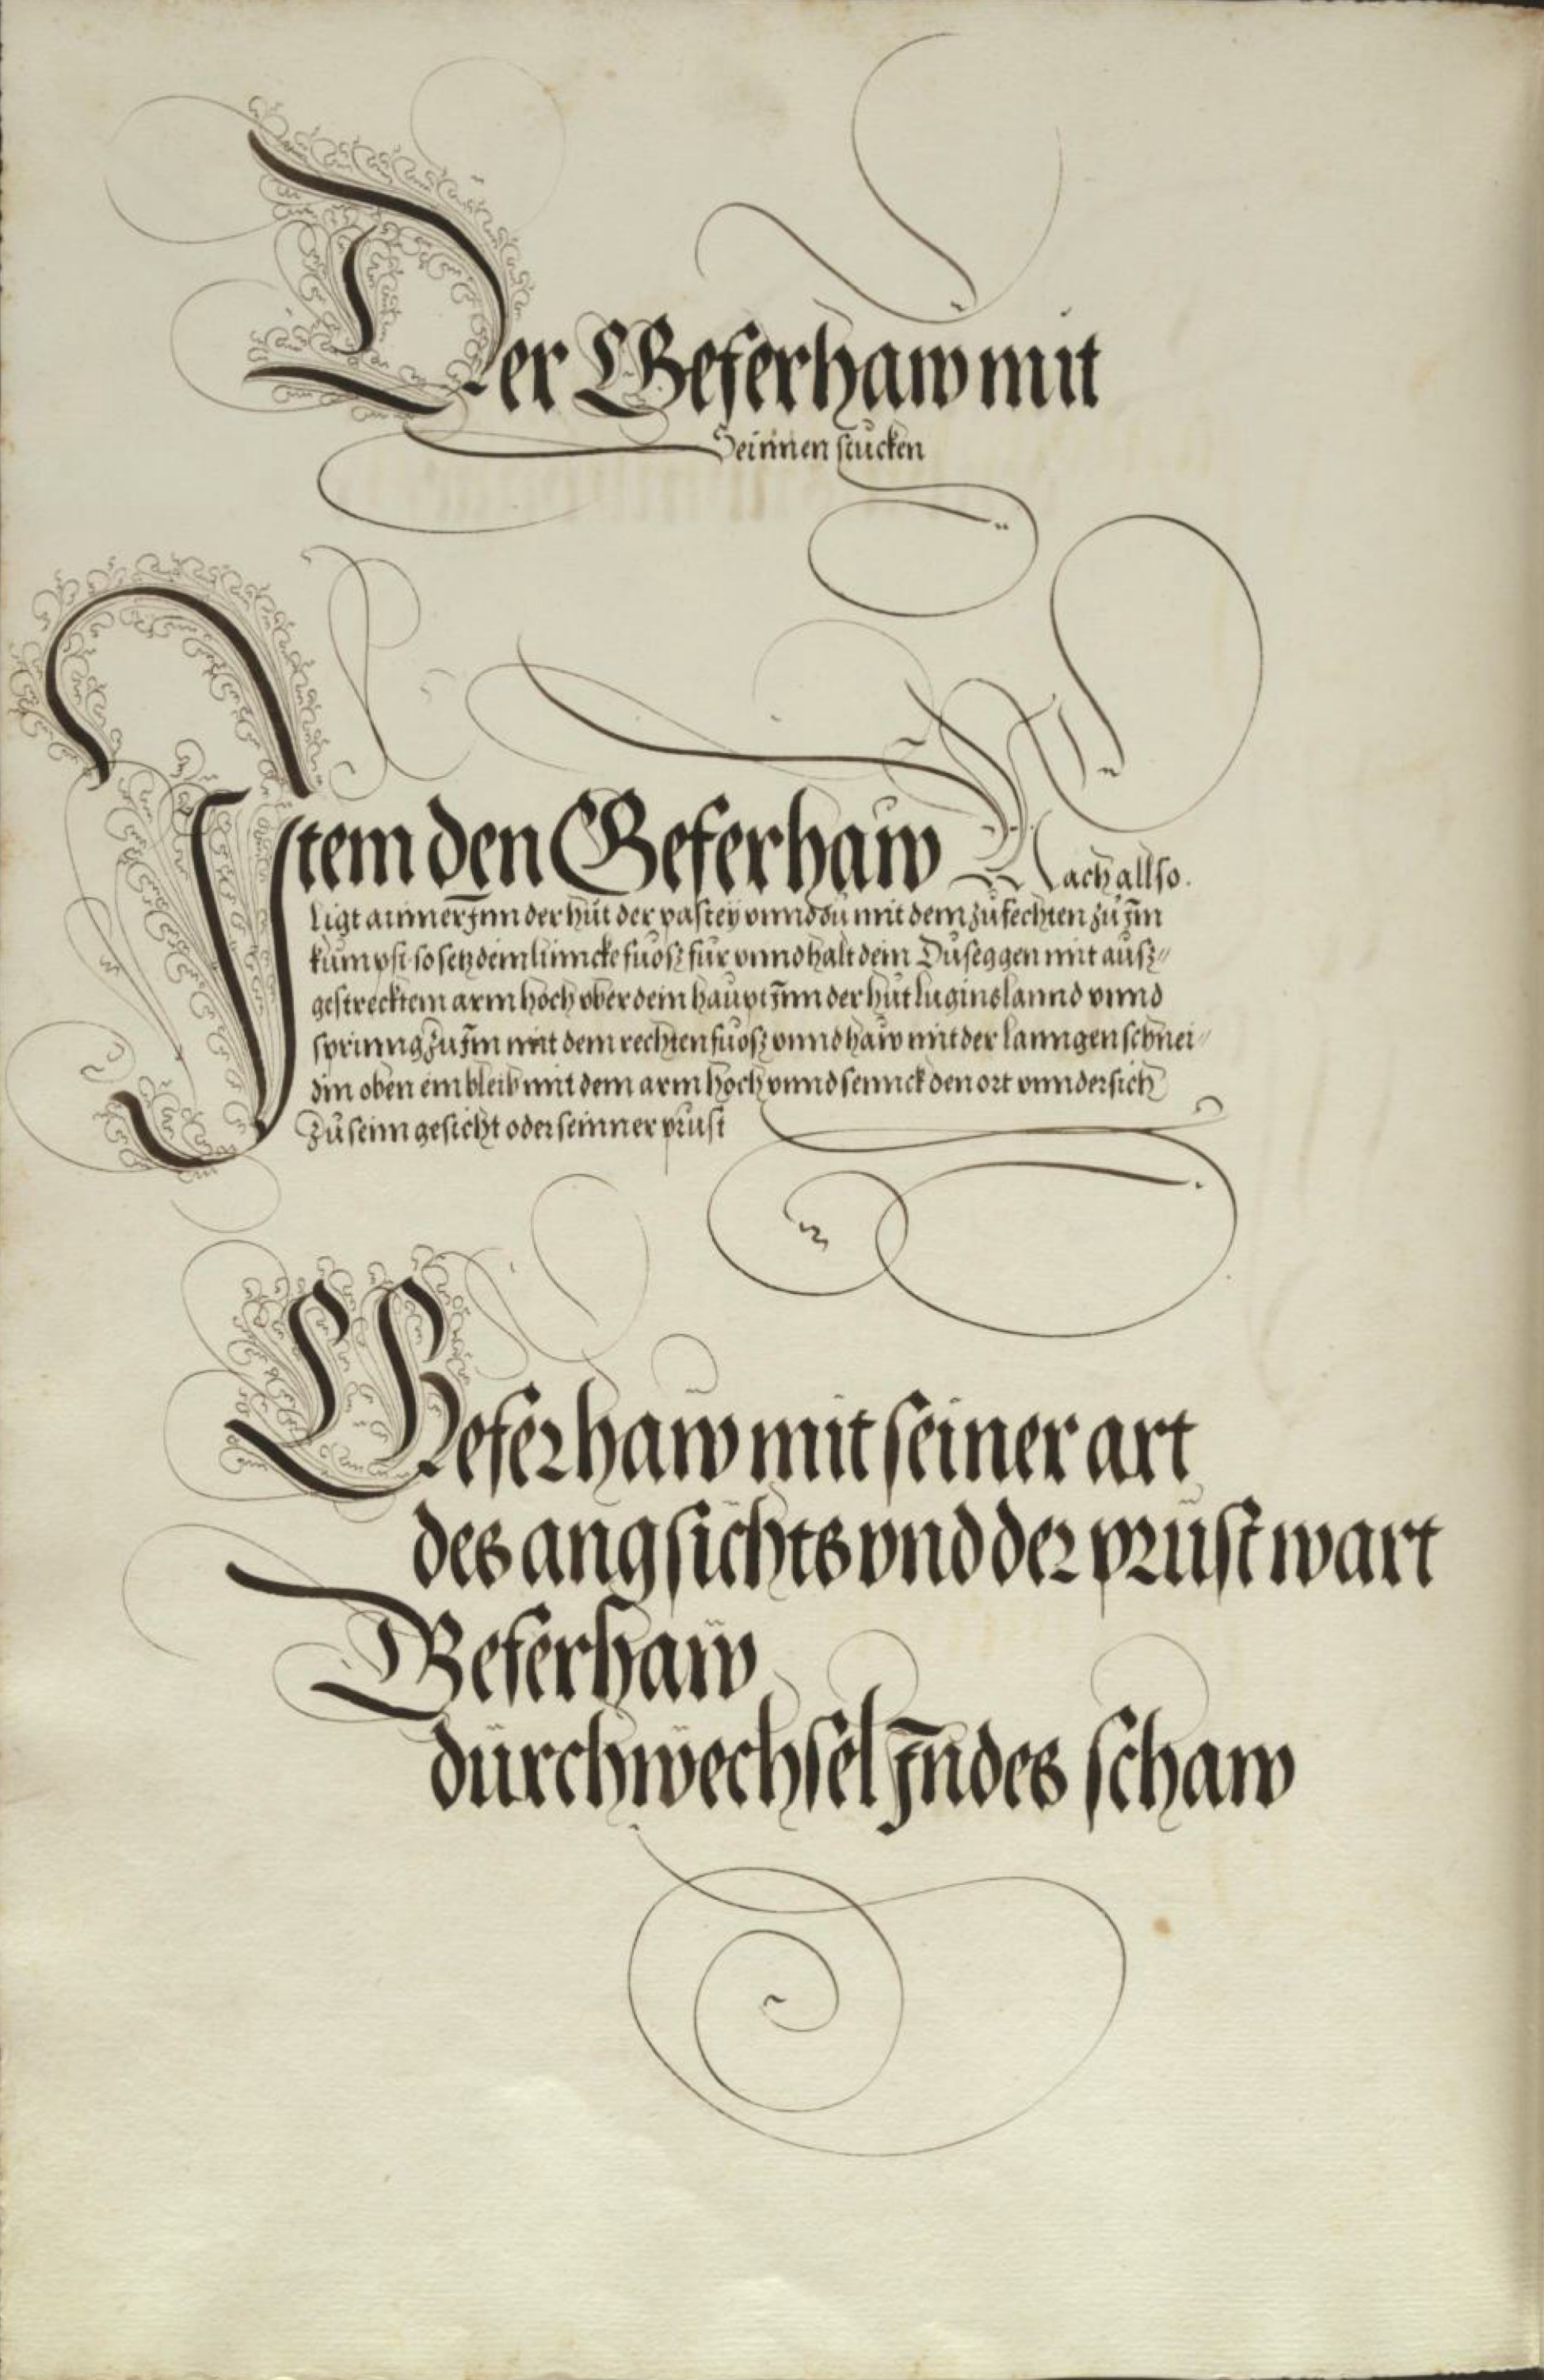 Der Weferhaw mit
Seinnen stucken
Item den Weferhaw Mach allso.
Ligt ainner Inn der hůt der pastey vnnd du mit dem zůfechten zů Im
kumpst so setz dein linncke fuosz fur vnnd halt dein Duseggen mit ausz„
gestrecktem arm hoch vber dein haupt Inn der hůt luginslannd vnnd
sprinng zů Im mit dem rechten fuosz vnnd haw mit der lanngen schnei„
din oben ein bleib mit dem arm hoch vnnd sennck den ort vnndersich
Zů seim gesicht oder seinner prust
Weferhaw mit seiner art
des angsichts vnd der prust wart
Weferhaw
durchwechsel Indes schaw